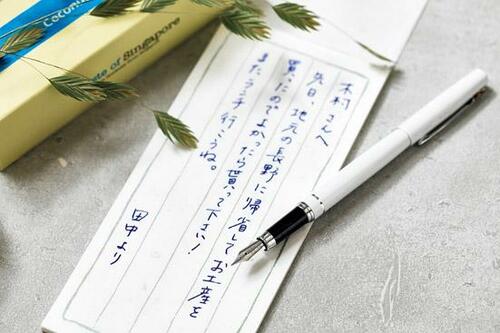 木村さんへ
先日、地元の長野に帰省してお土産を
買ったので上かったら貰って下さい！
またランチ行こうね。
田中より
Coconu
te of Singapore